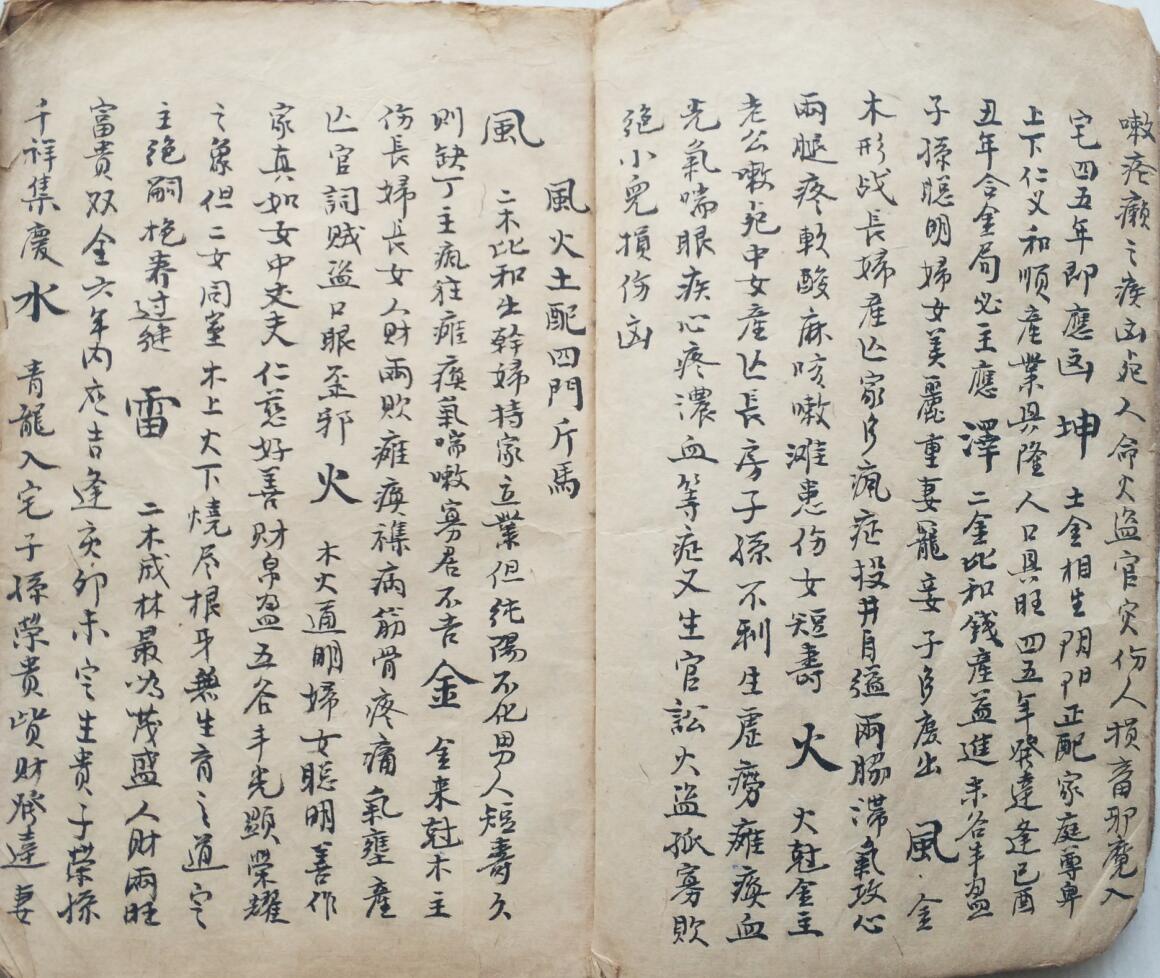 嗽疮癞之疾凶死人命火盗官灾伤人损畜邪魔入
宅四五年即應凶 坤 土金相生阴阳正配家庭尊卑
上下仁义和順產業具隆人口具旺四五年發達逢巳酉
丑年合金局必主應 澤 二金比和錢產益進米谷丰盈
子孫聪明婦女美麗重妻寵妾子多庶出 風 金
木形战長婦產亾家多疯症投井自缢兩脇滞氣攻心
兩腿疼軟酸麻咳嗽滩患伤女短壽 火 火尅金主
老公嗽死中女產亾長房子孫不利生虚痨瘫痪血
光氣喘眼疾心疼濃血等症又生官訟火盗孤寡敗
绝小兒損伤凶
風火土配四門斤馬
風 二木比和生幹婦持家立業但純陽不化男人短壽久
則缺丁主疯狂瘫痪氣喘嗽寡居不吉 金 金来尅木主
伤長婦長女人财兩敗瘫痪襍病筋骨疼痛氣壅產
亾官詞贼盗口眼歪邪 火 木火通明婦女聪明善作
家真如女中丈夫仁慈好善财帛盈五谷丰光顕榮耀
之象但二女同室木上火下燒尽根牙無生育之道定
主绝嗣抱养过継 雷 二木成林最為茂盛人财兩旺
富貴双全六年内应吉逢亥卯未定生貴子榮孫
千祥集慶 水 青龍入宅子孫榮貴貲财發達妻